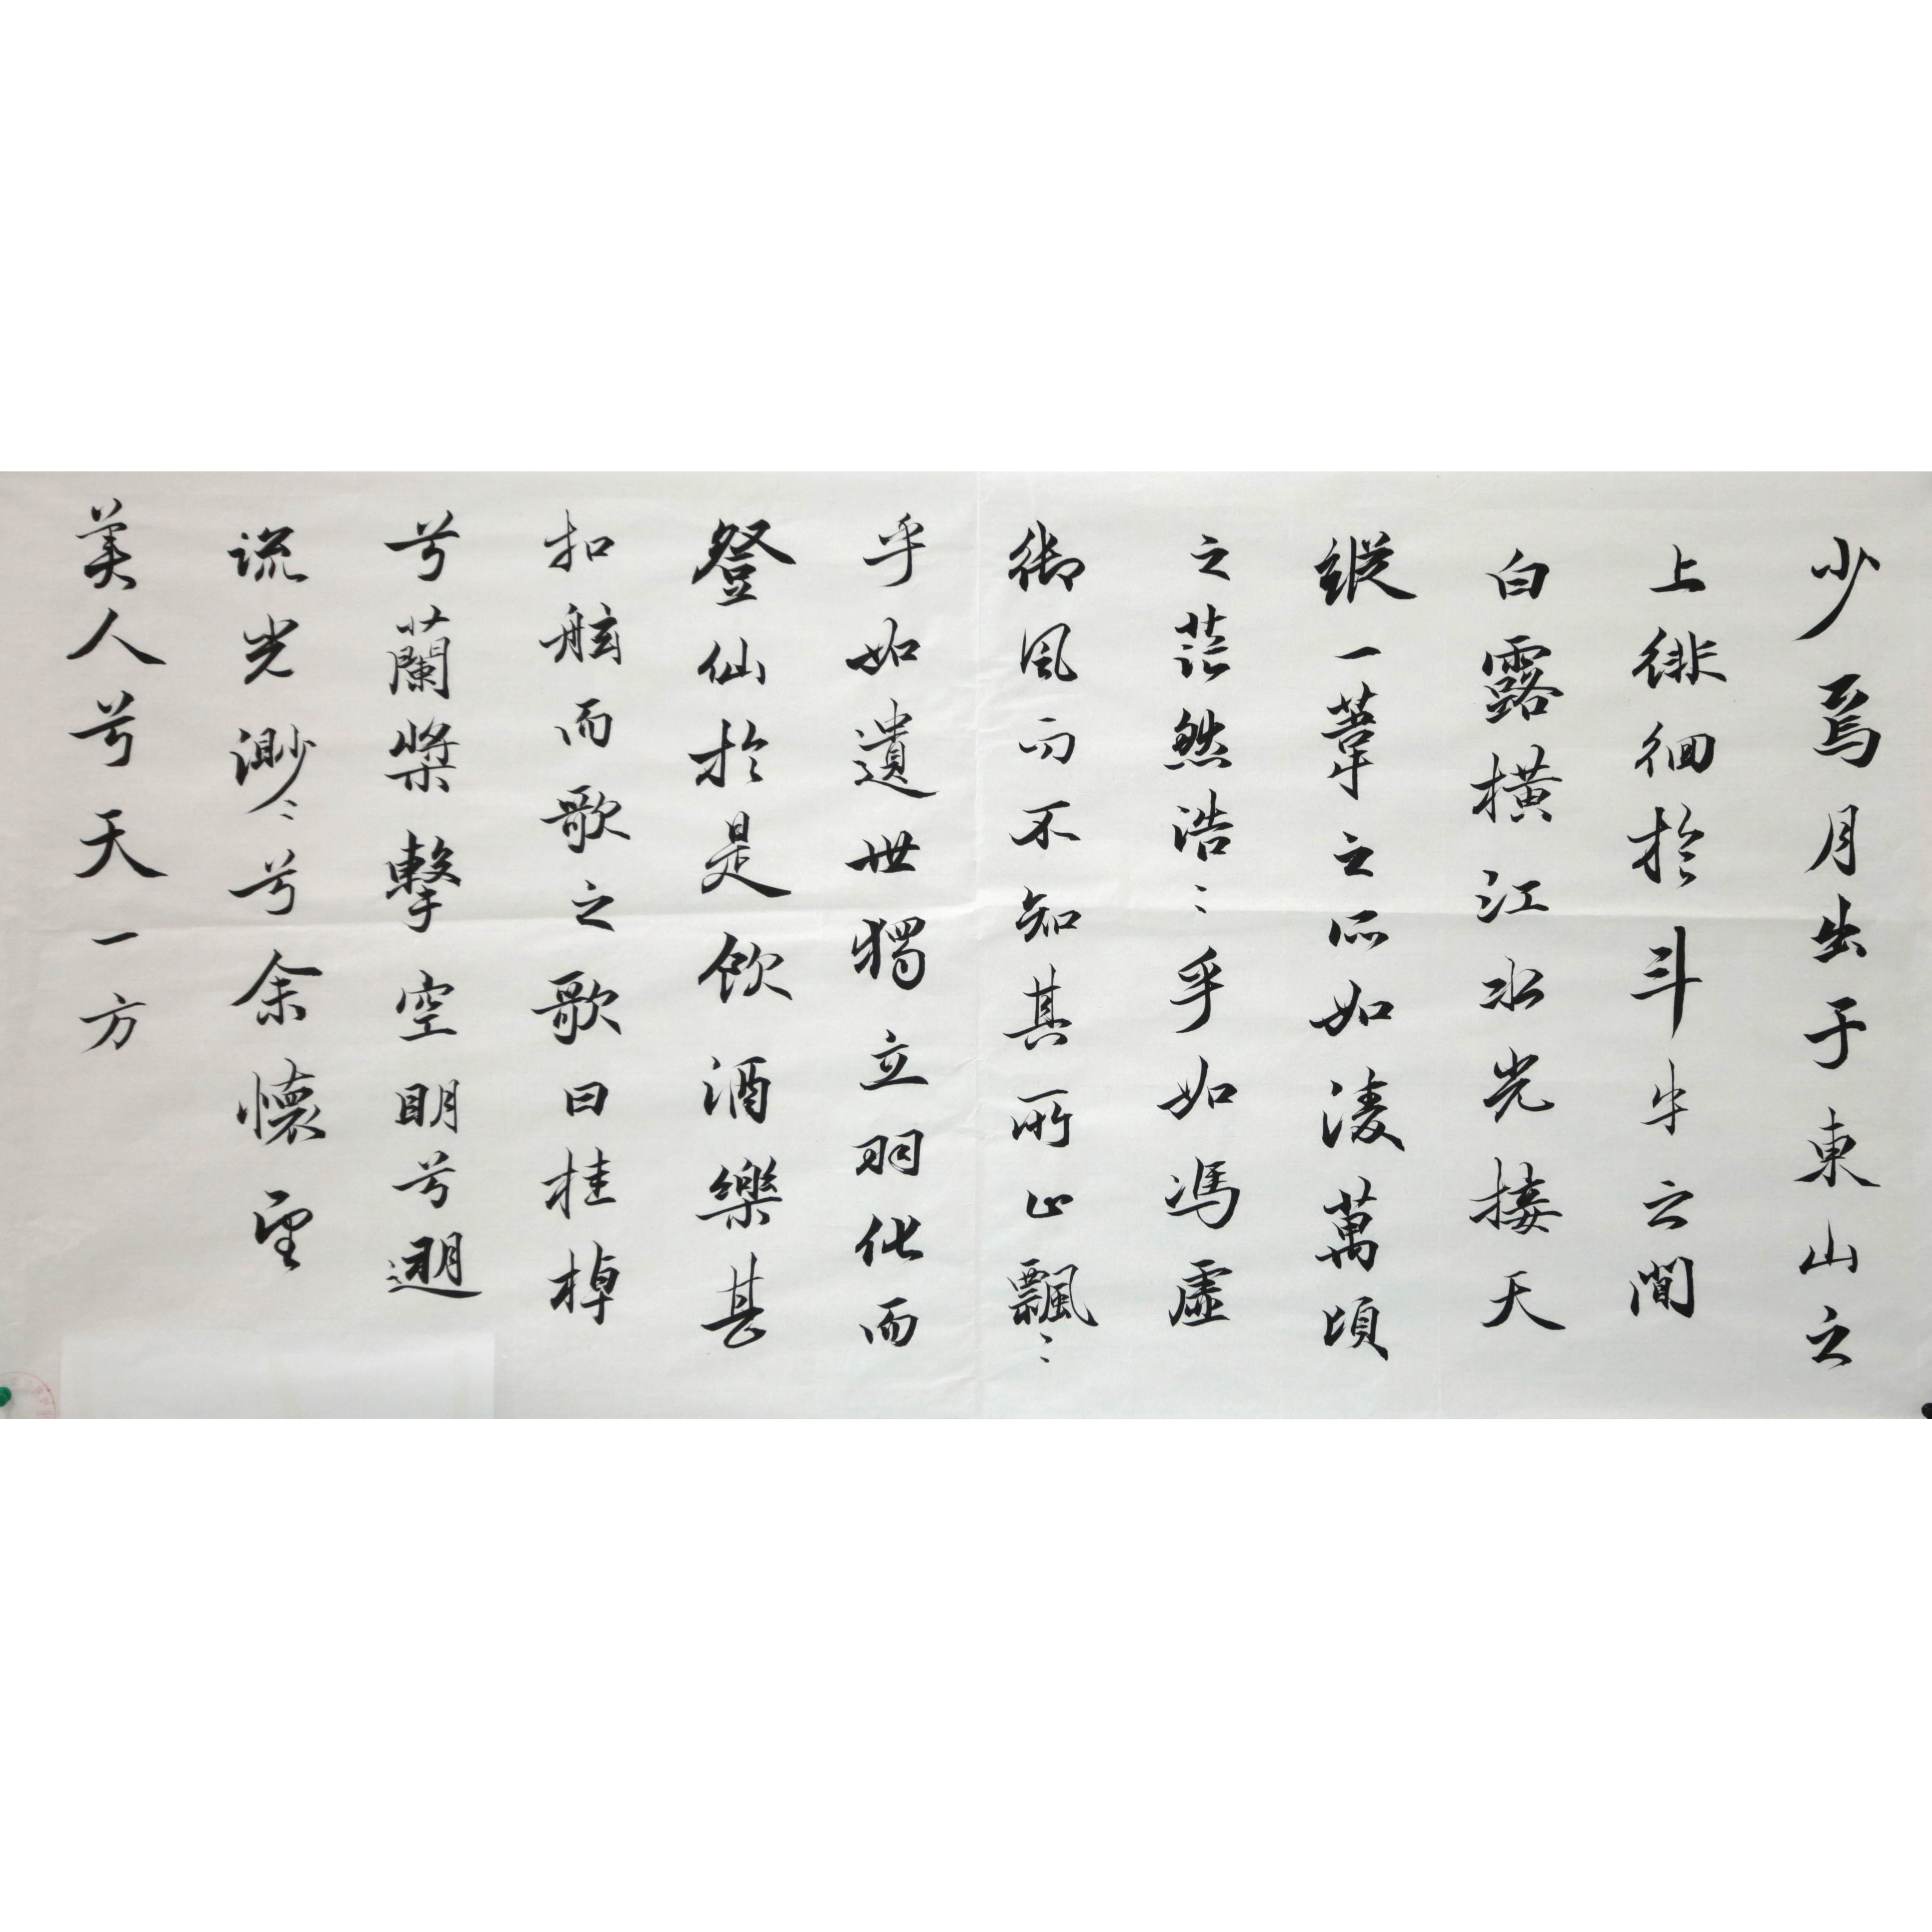 少焉月出于東山之
上徘徊於斗牛之間
白露橫江水光接天
縱一葦之所如凌萬頃
之茫然浩〻乎如馮虛
御風而不知其所止飄〻
乎如遺世獨立羽化而
登仙於是飲酒樂甚
扣舷而歌之歌曰桂棹
兮蘭槳擊空明兮遡
流光渺〻兮余懷望
美人兮天一方